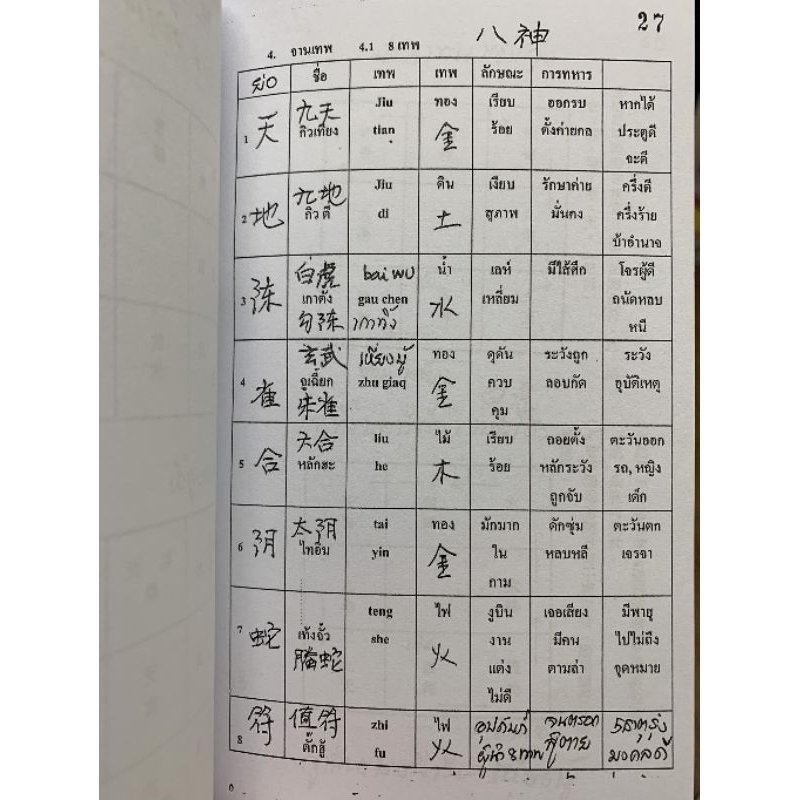 27
4. จานเทพ 4.1 8 เทพ 八神
ย่อ ชื่อ เทพ เทพ ลักษณะ การทหาร
1 天 九天 Jiu ทอง เรียบ ออกรบ หากได้
กิวเทียง tian 金 ร้อย ตั้งค่ายกล ประตูดี
จะดี
2 地 九地 Jiu ดิน เงียบ รักษาค่าย ครึ่งดี
กิว ตี่ di 土 สุภาพ มั่นคง ครึ่งร้าย
บ้าอำนาจ
3 陈 白虎 bai wu น้ำ เลห์ มีไส้ศึก โจรผู้ดี
เกาตั้ง gau chen 水 เหลี่ยม ถนัดหลบ
勾陈 เกาทิ้ง หนี
4 雀 玄武 เหี่ยงบู้ ทอง ดุดัน ระวังถูก ระวัง
จูเฉี้ยก zhu giaq 金 ควบ ลอบกัด อุบัติเหตุ
朱雀 คุม
5 合 六合 liu ไม้ เรียบ ถอยตั้ง ตะวันออก
หลักฮะ he 木 ร้อย หลักระวัง รถ, หญิง
ถูกจับ เด็ก
6 阴 太阴 tai ทอง มักมาก ดักซุ่ม ตะวันตก
ไทอิม yin 金 ใน หลบหลี เจรจา
กาม
7 蛇 teng ไฟ งูบิน เจอเสียง มีพายุ
เท้งจั๊ว she 火 งาน มีคน ไปไม่ถึง
螣蛇 แต่ง ตามล่า จุดหมาย
ไม่ดี
8 符 值符 zhi ไฟ อุปถัมภ์ จนตรอก 5ธาตุรุ่ง
ตั๊กฮู้ fu 火 ผู้นำ 8 เทพ สู้ตาย มงคลดี